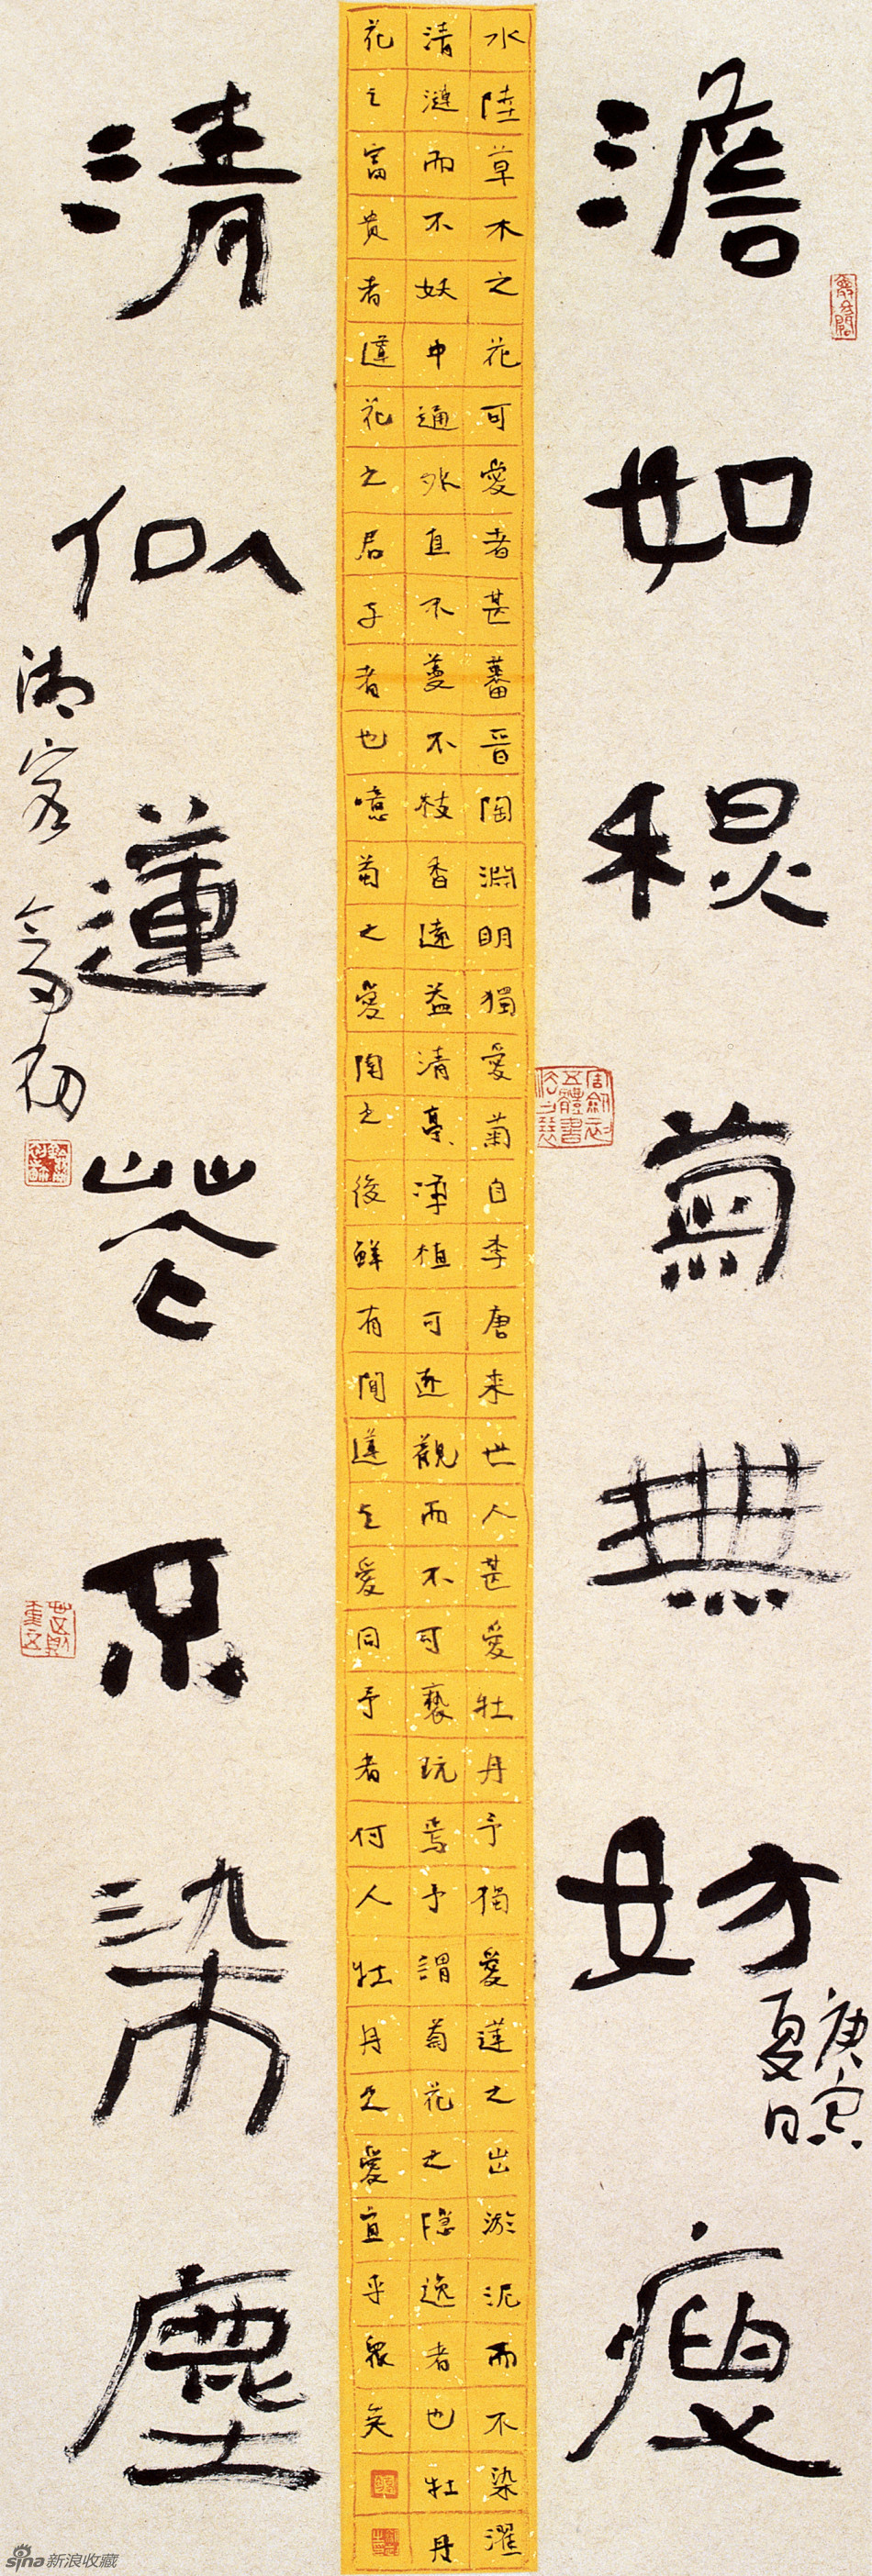 澹如秋菊無妨瘦
庚寅
夏日
水陸草木之花可愛者甚蕃晉陶淵明獨愛菊自李唐来世人甚愛牡丹予獨愛蓮之出淤泥而不染濯
清漣而不妖中通外直不蔓不枝香遠益清亭〻淨植可遠觀而不可褻玩焉予謂菊花之隱逸者也牡丹
花之富貴者蓮花之君子者也噫菊之愛陶之後鮮有聞蓮之愛同予者何人牡丹之愛宜乎衆矣
清似蓮花不染塵
sina新浪收藏